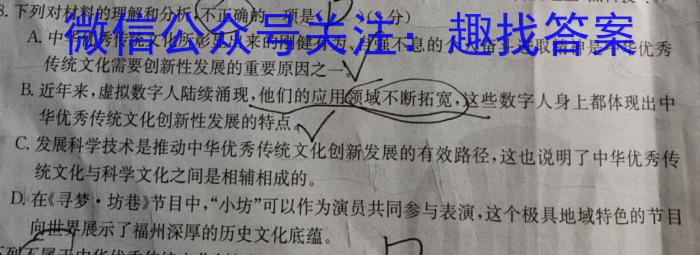 8.下列对材料的理解和分析,不正确的一项是(3分)
微信公众号关注：趣找答案
A.中华优秀传统文化所彰显出来的刚健有为、自强不息的个人奋斗进取精神是中华优秀
传统文化需要创新性发展的重要原因之一。
B.近年来,虚拟数字人陆续涌现,他们的应用领域不断拓宽,这些数字人身上都体现出中
华优秀传统文化创新性发展的特点。
C.发展科学技术是推动中华优秀传统文化创新发展的有效路径,这也说明了中华优秀传
统文化与科学文化之间是相辅相成的。
D.在《寻梦·坊巷》节目中,“小坊”可以作为演员共同参与表演,这个极具地域特色的节目
向世界展示了福州深厚的历史文化底蕴。